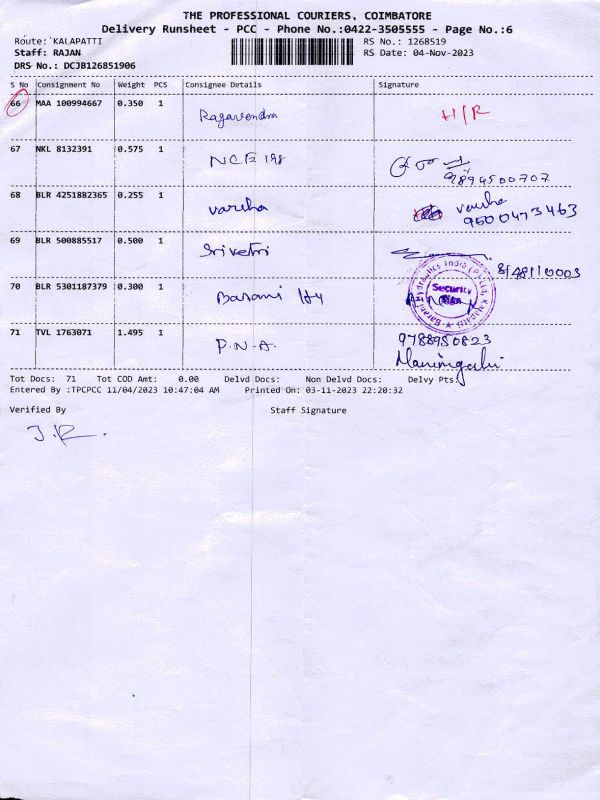 THE PROFESSIONAL COURIERS, COIMBATORE
Delivery Runsheet - PCC - Phone No.:0422-3505555 - Page No.:6
Route: KALAPATTI RS No.: 1268519
Staff: RAJAN RS Date: 04-Nov-2023
DRS No.: DCJB126851906
S No Consignment No Weight PCS Consignee Details Signature
66 MAA 100994667 0.350 1 Ragavendra H/R
67 NKL 8132391 0.575 1 NCE 198
9894500707
68 BLR 4251882365 0.255 1 varsha varsha
9500473463
69 BLR 500885517 0.500 1 Srivetri
70 BLR 5301187379 0.300 1 Barani Hy Security
71 TVL 1763071 1.495 1 P.N.A. 9788950823
Tot Docs: 71 Tot COD Amt: 0.00 Delvd Docs: Non Delvd Docs: Delvy Pts:
Entered By :TPCPCC 11/04/2023 10:47:04 AM Printed On: 03-11-2023 22:20:32
Verified By Staff Signature